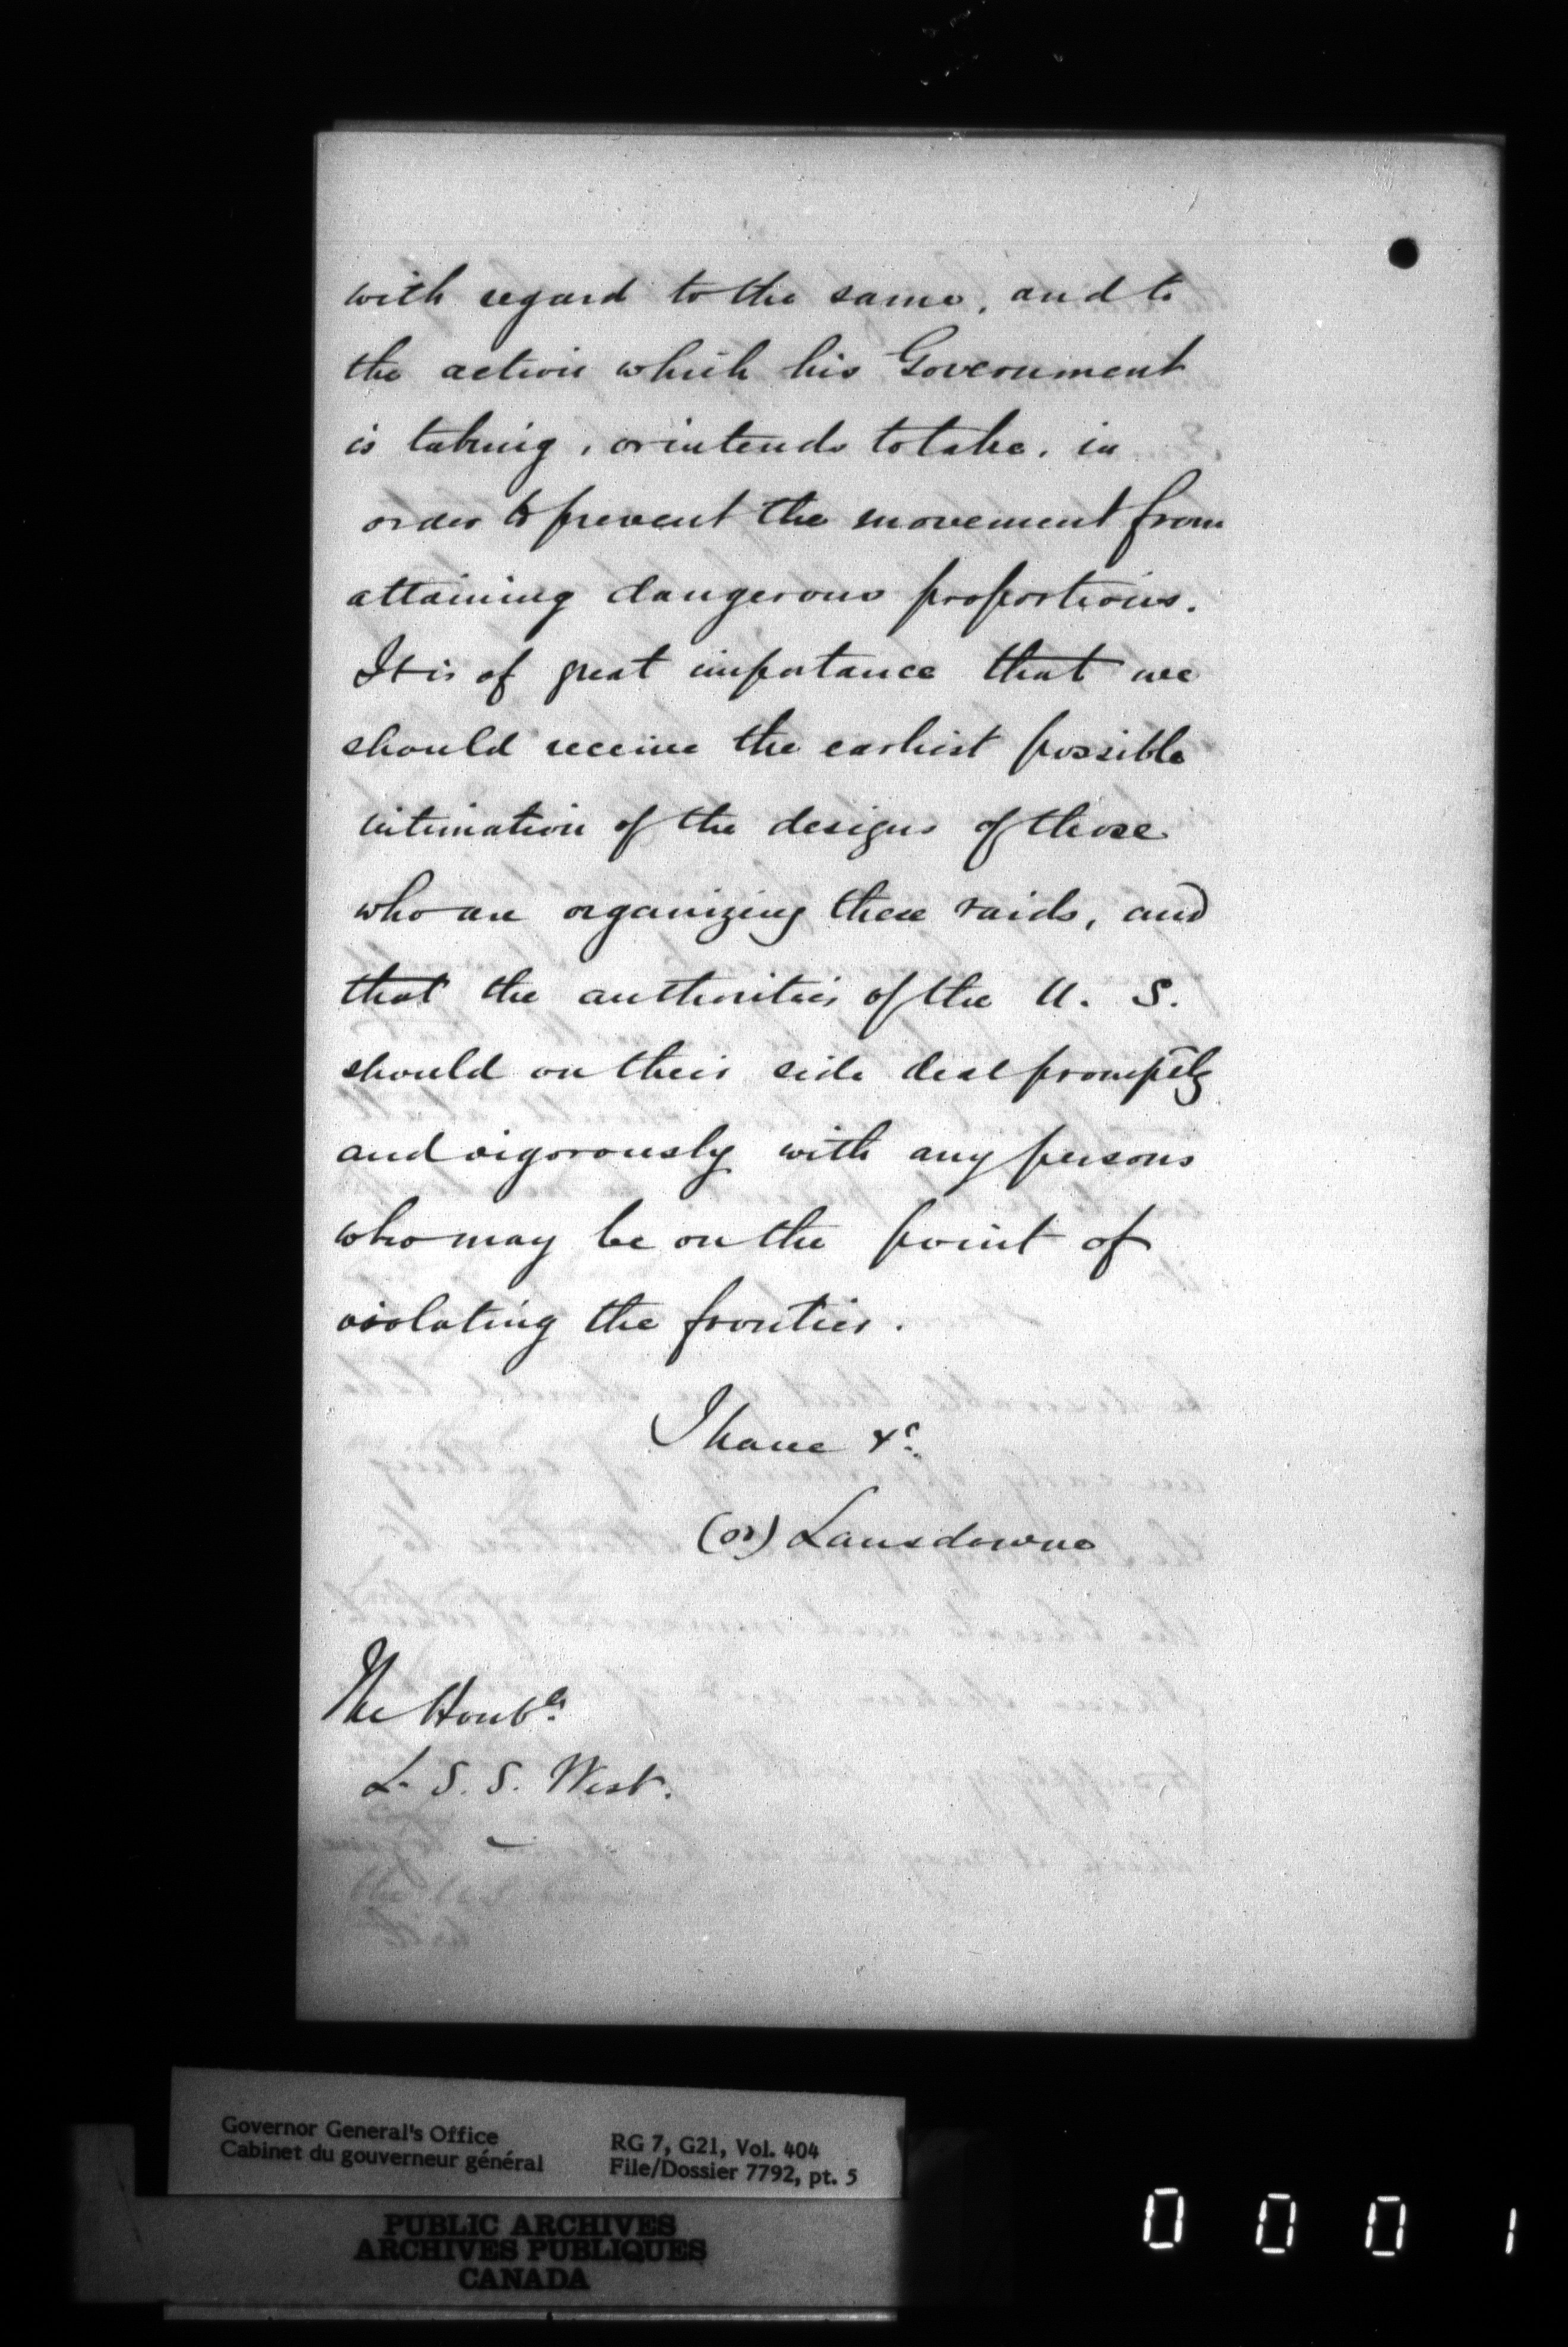 with regard to the same, and to
the action which his Government
is taking, or intends to take, in
order to prevent the movement from
attaining dangerous proportions.
It is of great importance that we
should receive the earliest possible
intimation of the designs of those
who are organizing these raids, and
that the authorities of the U. S.
should on their side deal promptly
and vigorously with any persons
who may be on the point of
violating the frontier.
I have &c.
Lansdowne
The Honble
L. S. S. West.
Governor General's Office
Cabinet du gouverneur général
RG 7, G21, Vol. 404
File/Dossier 7792, pt. 5
PUBLIC ARCHIVES
ARCHIVES PUBLIQUES
CANADA
0 0 0 1